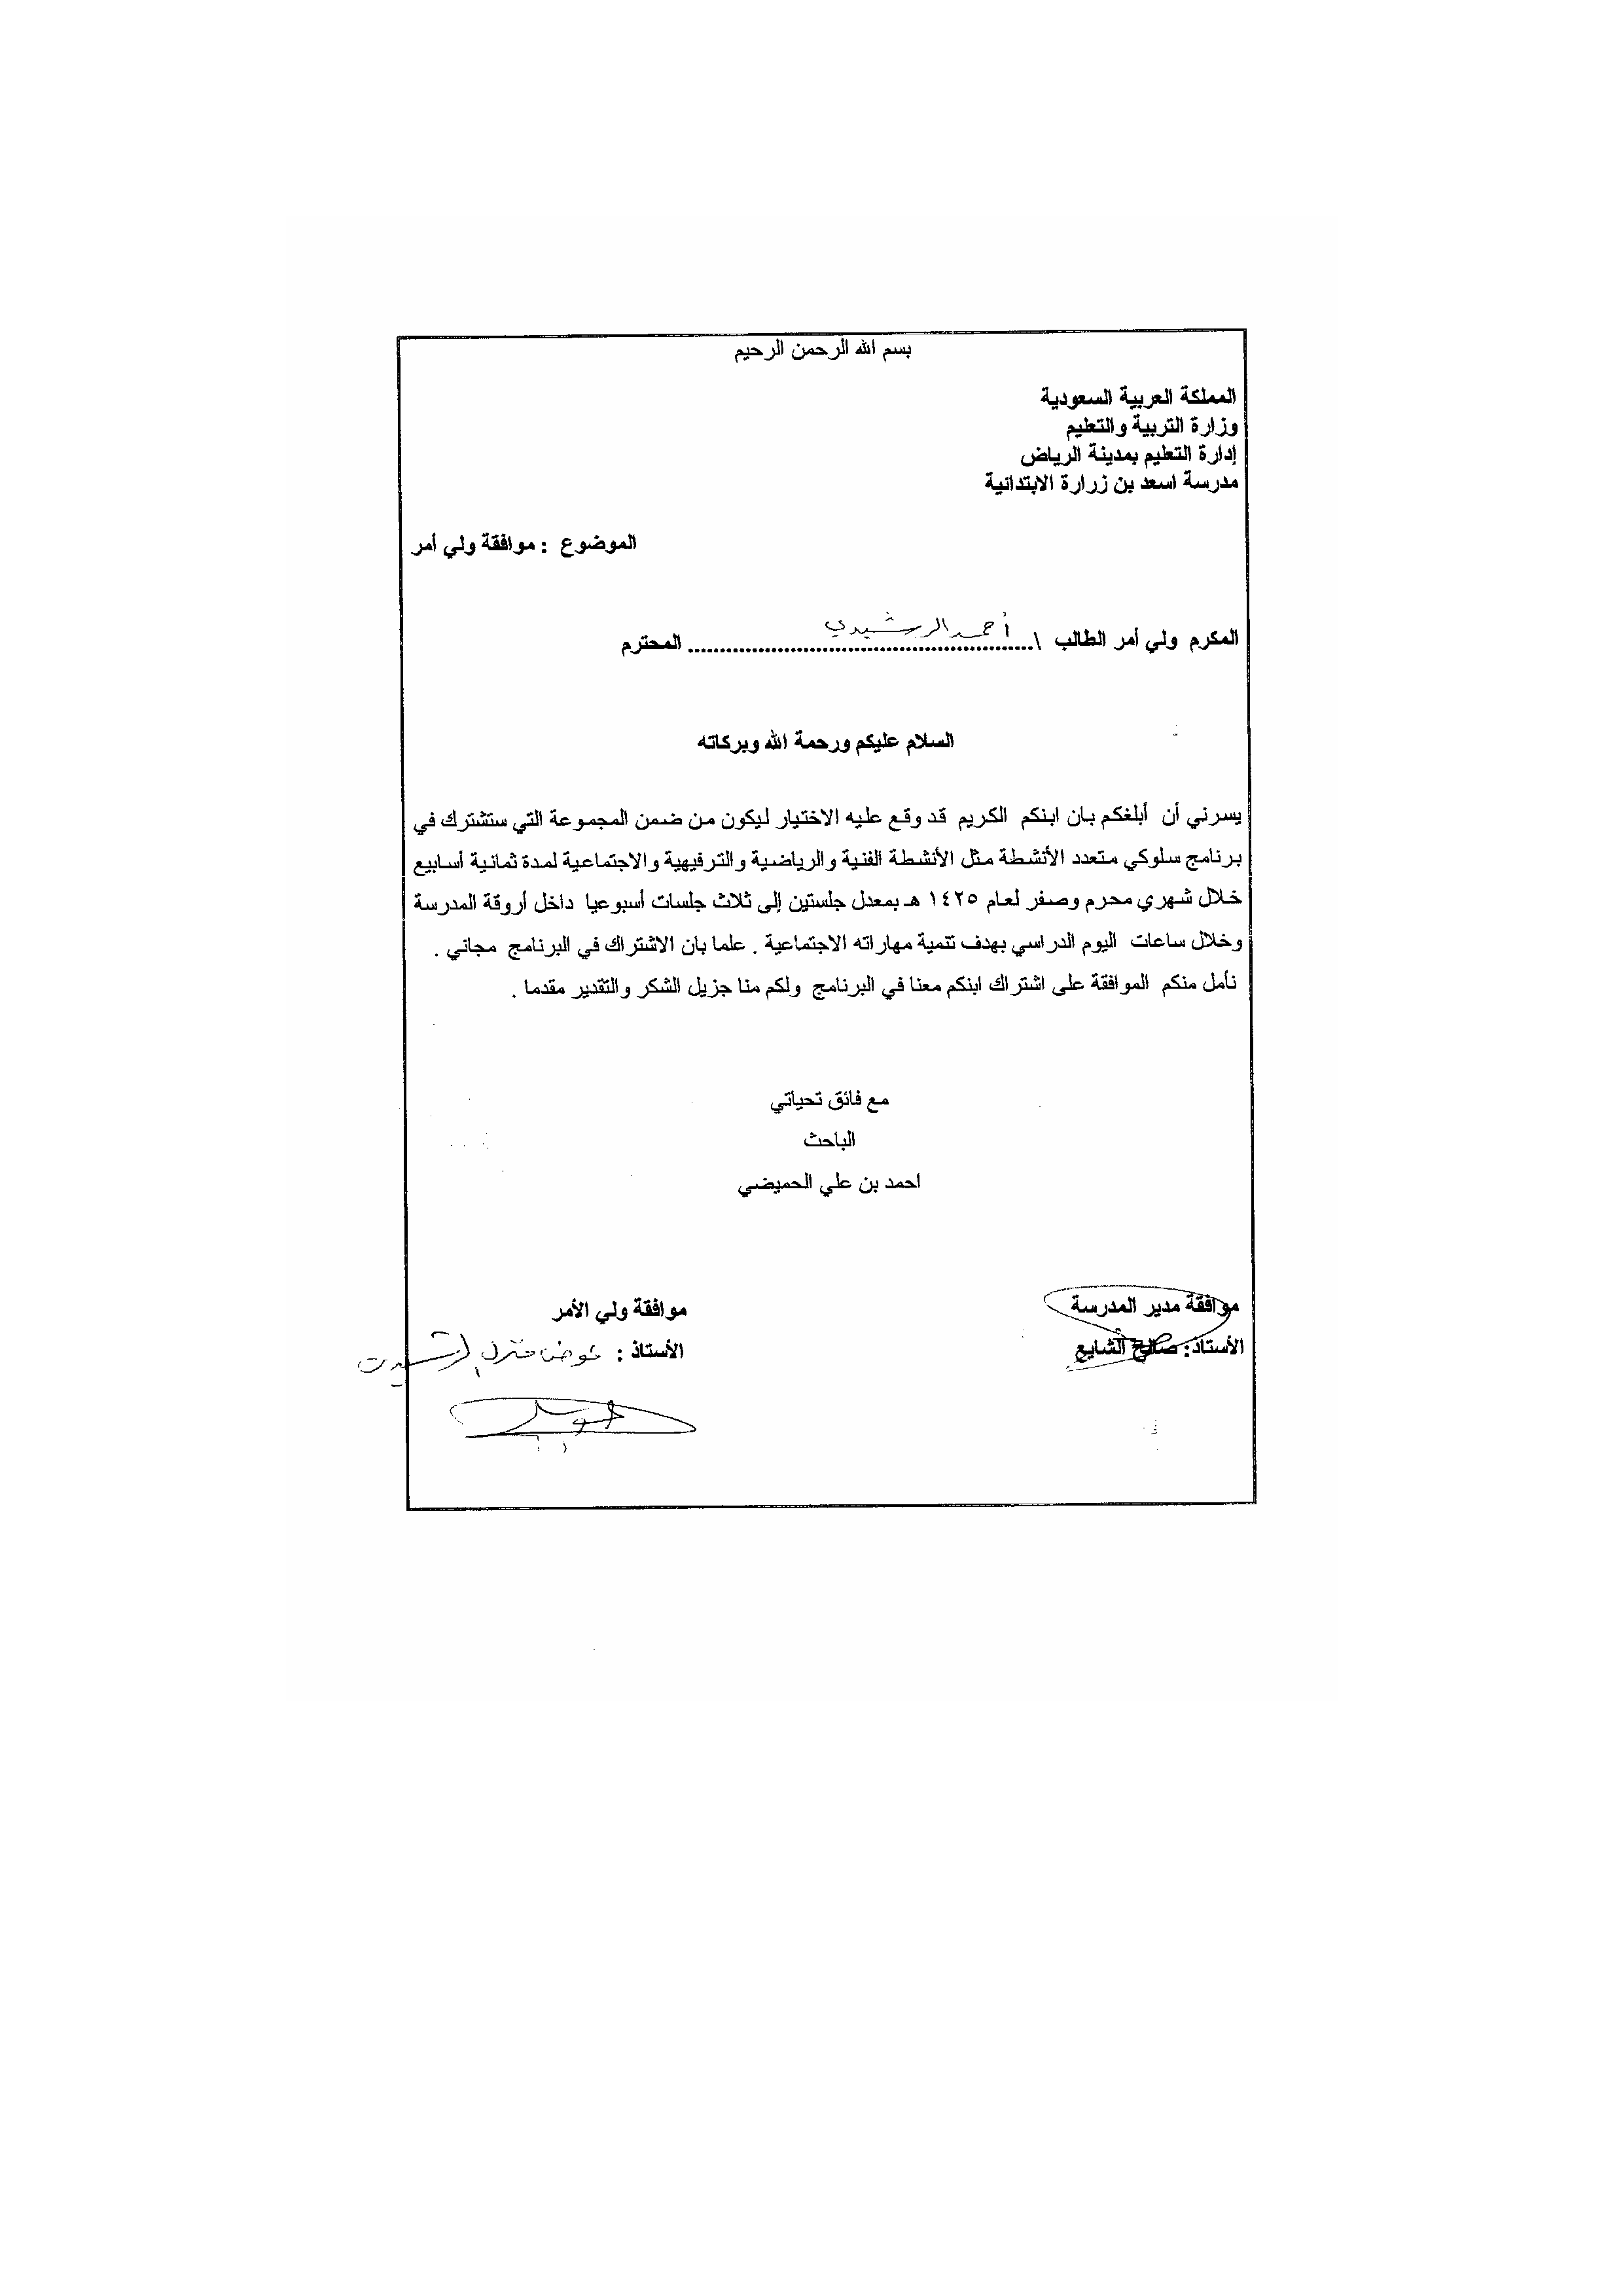 بسم الله الرحمن الرحيم
المملكة العربية السعودية
وزارة التربية والتعليم
إدارة التعليم بمدينة الرياض
مدرسة اسعد بن زرارة الابتدائية
الموضوع : موافقة ولي أمر
المكرم ولي أمر الطالب \ أحمد الرشيدي المحترم
السلام عليكم ورحمة الله وبركاته
يسرني أن أبلغكم بان ابنكم الكريم قد وقع عليه الاختيار ليكون من ضمن المجموعة التي ستشترك في
برنامج سلوكي متعدد الأنشطة مثل الأنشطة الفنية والرياضية والترفيهية والاجتماعية لمدة ثمانية أسابيع
خلال شهري محرم وصفر لعام ١٤٢٥ هـ بمعدل جلستين إلى ثلاث جلسات أسبوعيا داخل أروقة المدرسة
وخلال ساعات اليوم الدراسي بهدف تنمية مهاراته الاجتماعية . علما بان الاشتراك في البرنامج مجاني .
نأمل منكم الموافقة على اشتراك ابنكم معنا في البرنامج ولكم منا جزيل الشكر والتقدير مقدما .
مع فائق تحياتي
الباحث
احمد بن علي الحميضي
موافقة مدير المدرسة
الأستاذ: صالح الشايع
موافقة ولي الأمر
الأستاذ : عوض الرشيدي